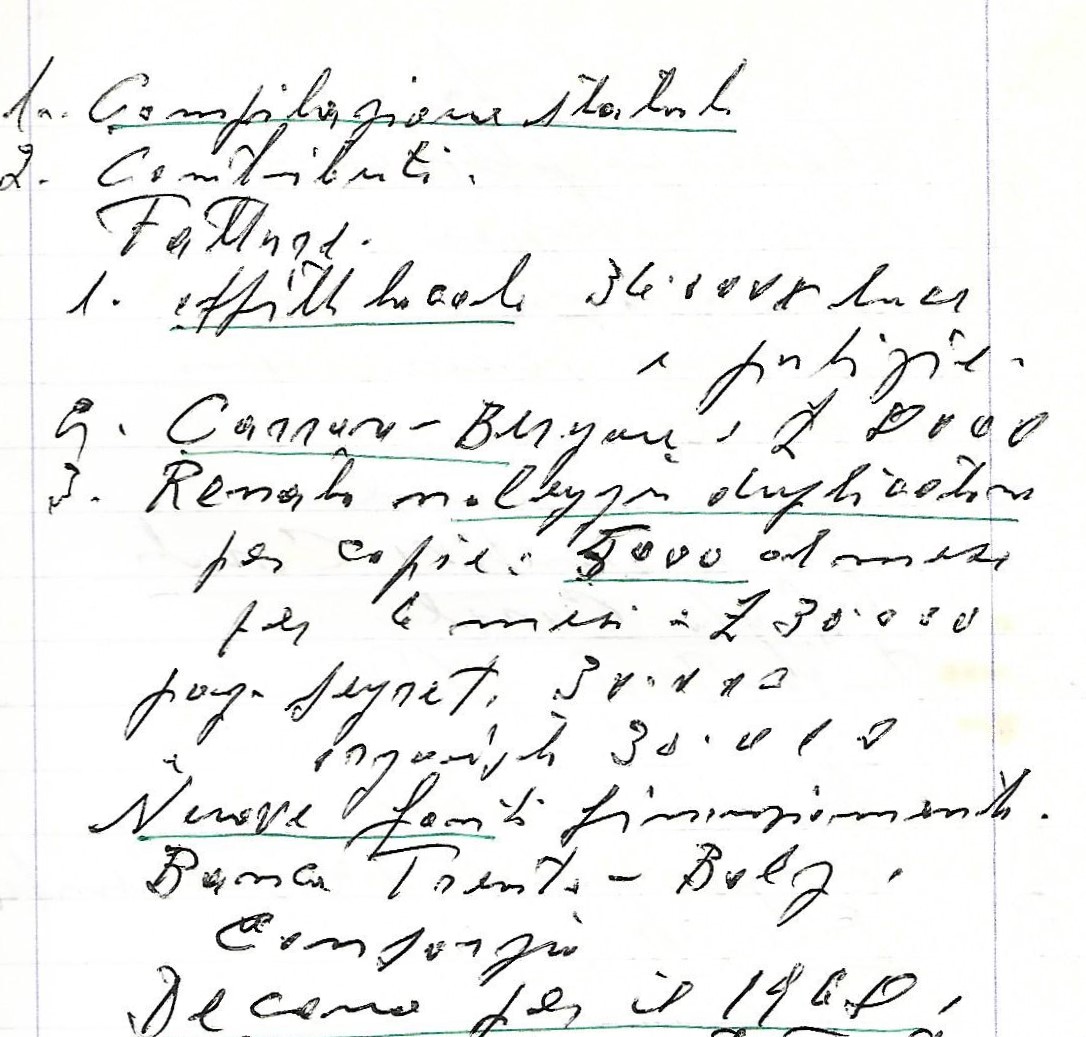 1. Compilazione statuto
2. Contributi.
Fatture.
1. affitto locale 36.000 luce
e pulizie.
2. Carraro - Bergami, £ 8000
3. Renato noleggio duplicatore
per copie: 5000 al mese
per 6 mesi = £ 30.000
pag. segret. 30.000
" 30.000
Nuove fonti finanziamento.
Banca Trento - Bolz.
Consorzio
Decano per il 1968,